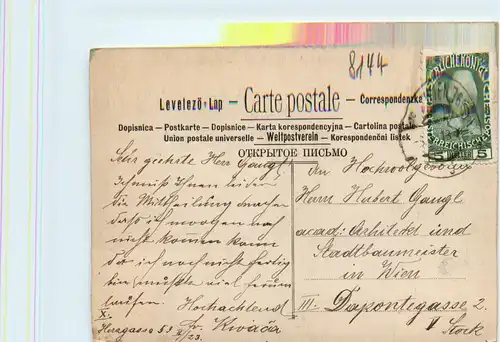 8144
Levelező-Lap – Carte postale – Correspondenzkarte
Dopisnica – Postkarte – Dopisnice – Karta korespondencyjna – Cartolina postale
Union postale universelle – Weltpostverein – Korespondenční lístek
ОТКРЫТОЕ ПИСЬМО
Sehr geehrte Herr Gangl
Ich muß Ihnen leider
die Mittheilung machen
daß ich morgen noch
nicht kommen kann
da ich noch nicht fertig
bin mußte viel herum
laufen.
Hochachtend
Fr.
X.
Herzgasse
II/23.
An Hochwolgeboren
Herrn Hubert Gangl
acad: Arhitekt und
Stadtbaumeister
in Wien
III. Dapontegasse 2.
Stock
5 5